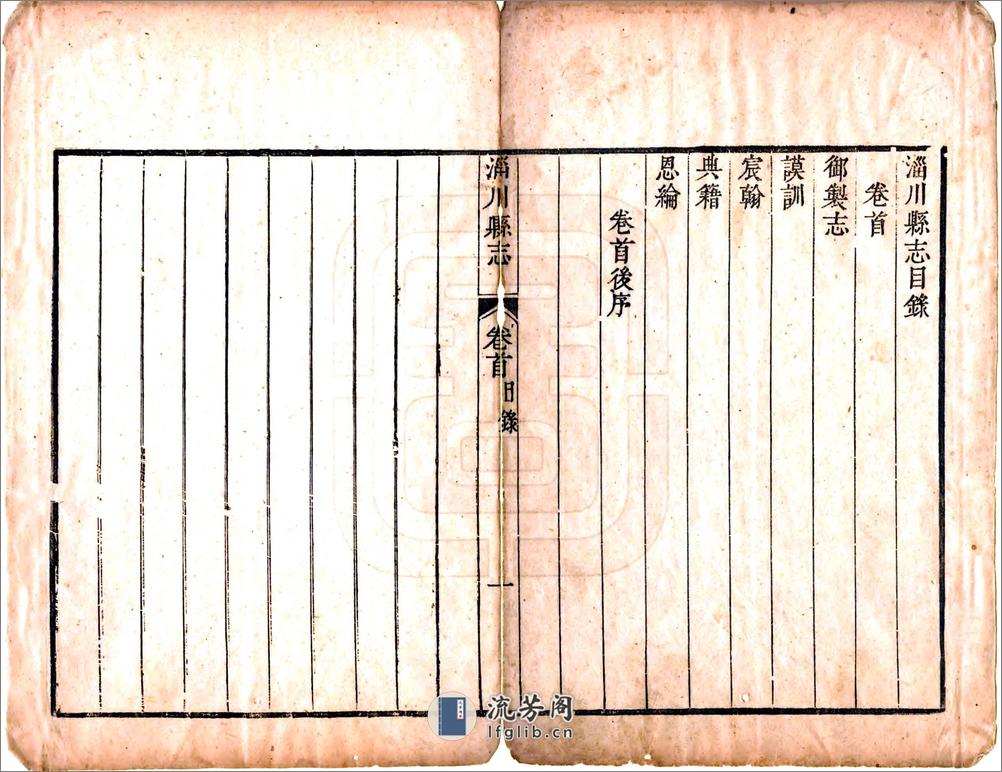 淄川縣志目錄
卷首
御製志
謨訓
宸翰
典籍
恩綸
卷首後序
淄川縣志
卷首
目錄
一
流芳阁
lfglib.cn